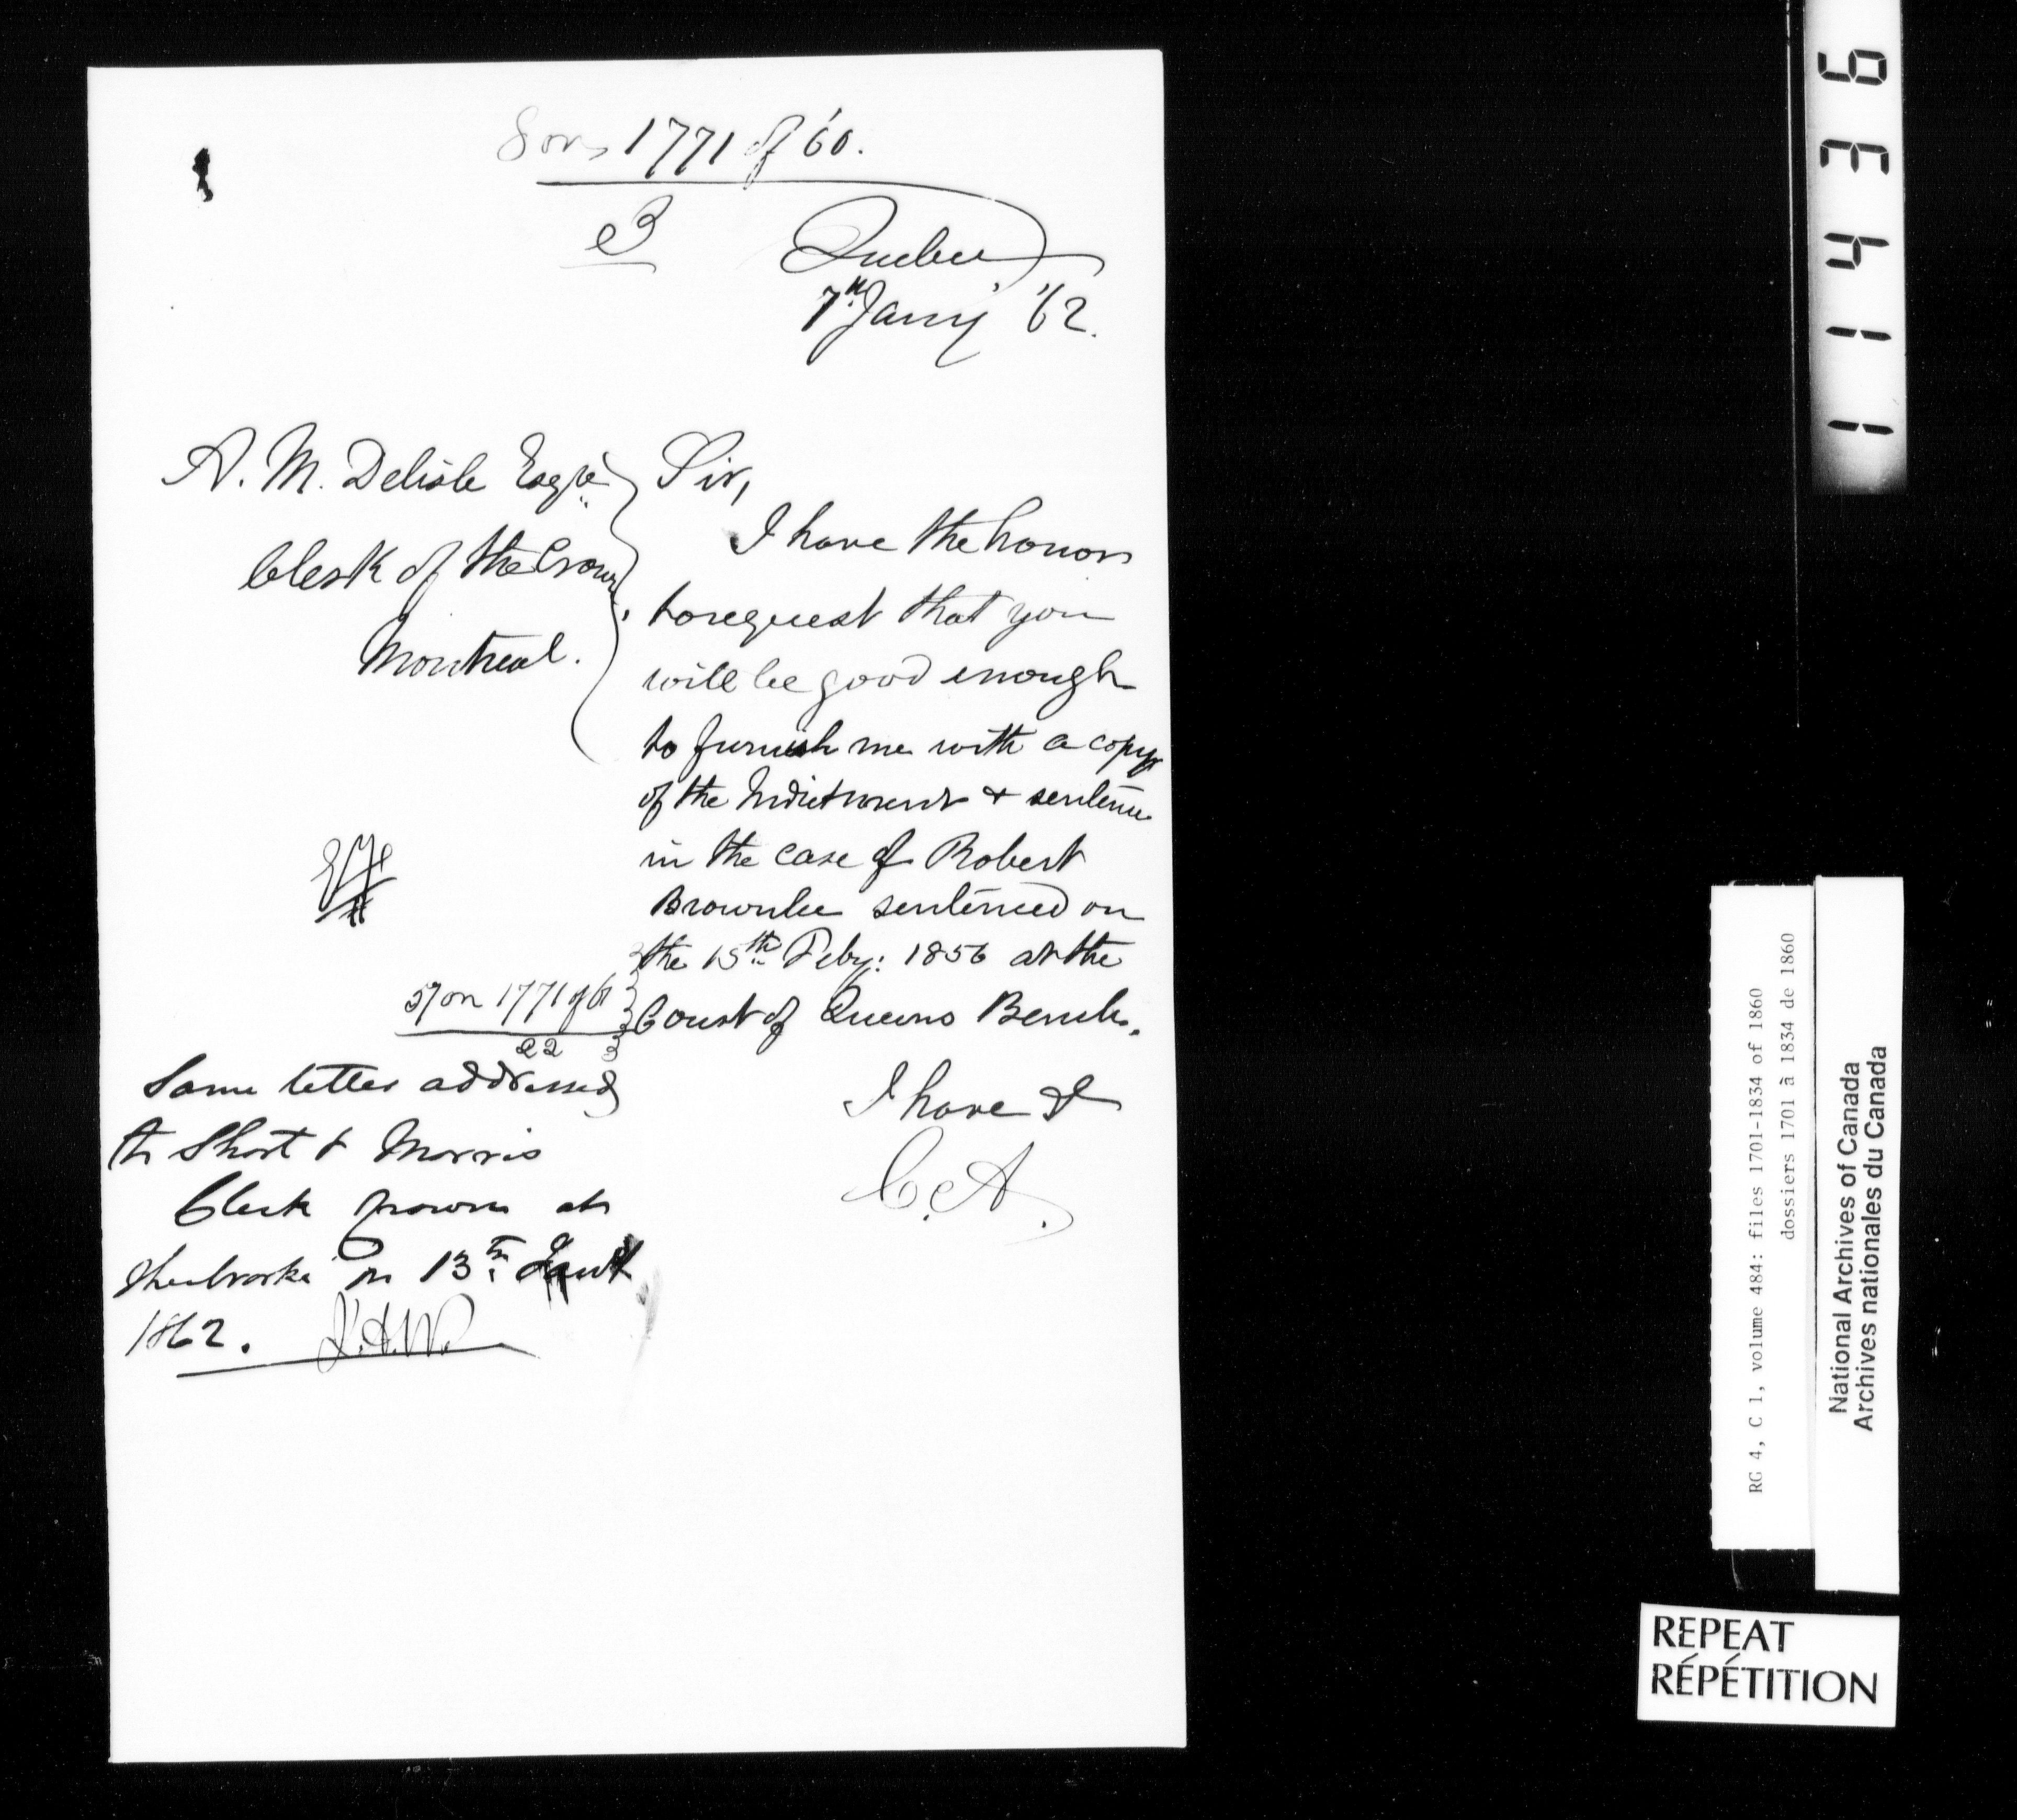 8 on 1771 of '60.
e3
Quebec
7th Jany '62.
A. M. Delisle Esqre
Clerk of the Crown
Montreal.
Sir,
I have the honor
to request that you
will be good enough
to furnish me with a copy
of the Indictment & sentence
in the case of Robert
Brownlee sentenced on
the 15th Feby: 1856 at the
Court of Queens Bench.
I have &
C.A.
57 on 1771 of 61
22
Same letter addressed
to Short & Morris
Clerk Crown at
Sherbrooke on 13th
1862.
11436
RG 4, C 1, volume 484: files 1701-1834 of 1860
dossiers 1701 à 1834 de 1860
National Archives of Canada
Archives nationales du Canada
REPEAT
RÉPÉTITION